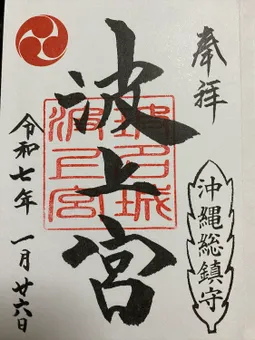 奉拝
沖縄総鎮守
波上宮
令和七年 一月廿六日